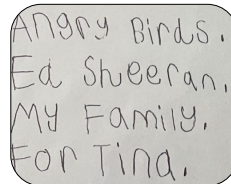 Angry Birds.
Ed Sheeran,
My Family,
For Tina.